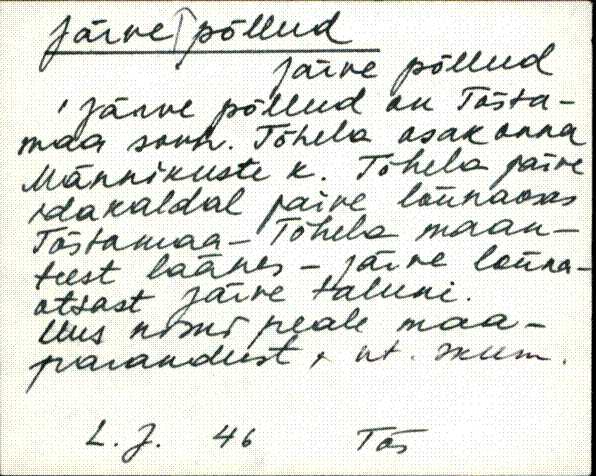 Järve põllud
Järve põllud
'Järve põllud on Tõsta-
maa sovh. Tõhela osakonna
Männikuste k. Tõhela järve
idakaldal järve lõunaosas
Tõstamaa - Tõhela maan-
teest läänes - järve lõuna-
otsast Järve taluni.
Uus nimi peale maa-
parandust, nt.
L. J. 46 Tõs